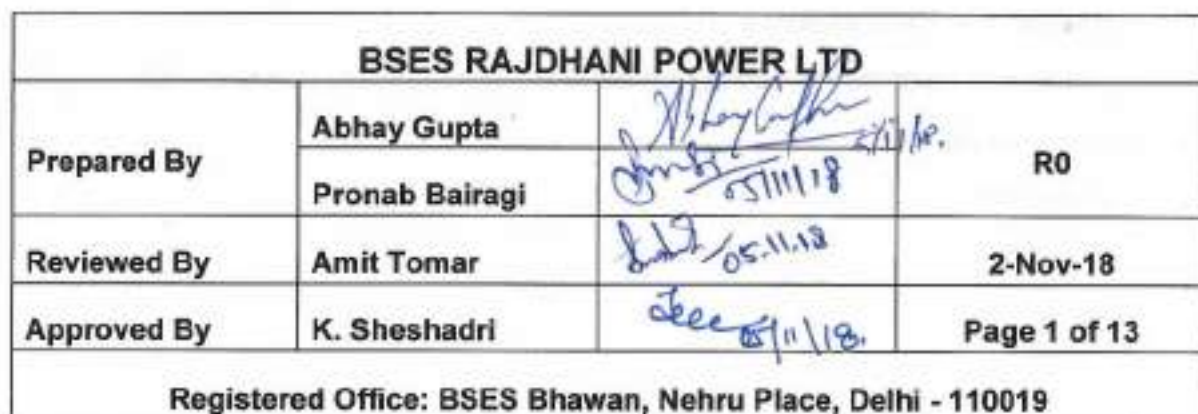 BSES RAJDHANI POWER LTD
Prepared By
Abhay Gupta
Abhay Gupta
R0
Pronab Bairagi
05/11/18
Reviewed By
Amit Tomar
05.11.18
2-Nov-18
Approved By
K. Sheshadri
05/11/18.
Page 1 of 13
Registered Office: BSES Bhawan, Nehru Place, Delhi - 110019